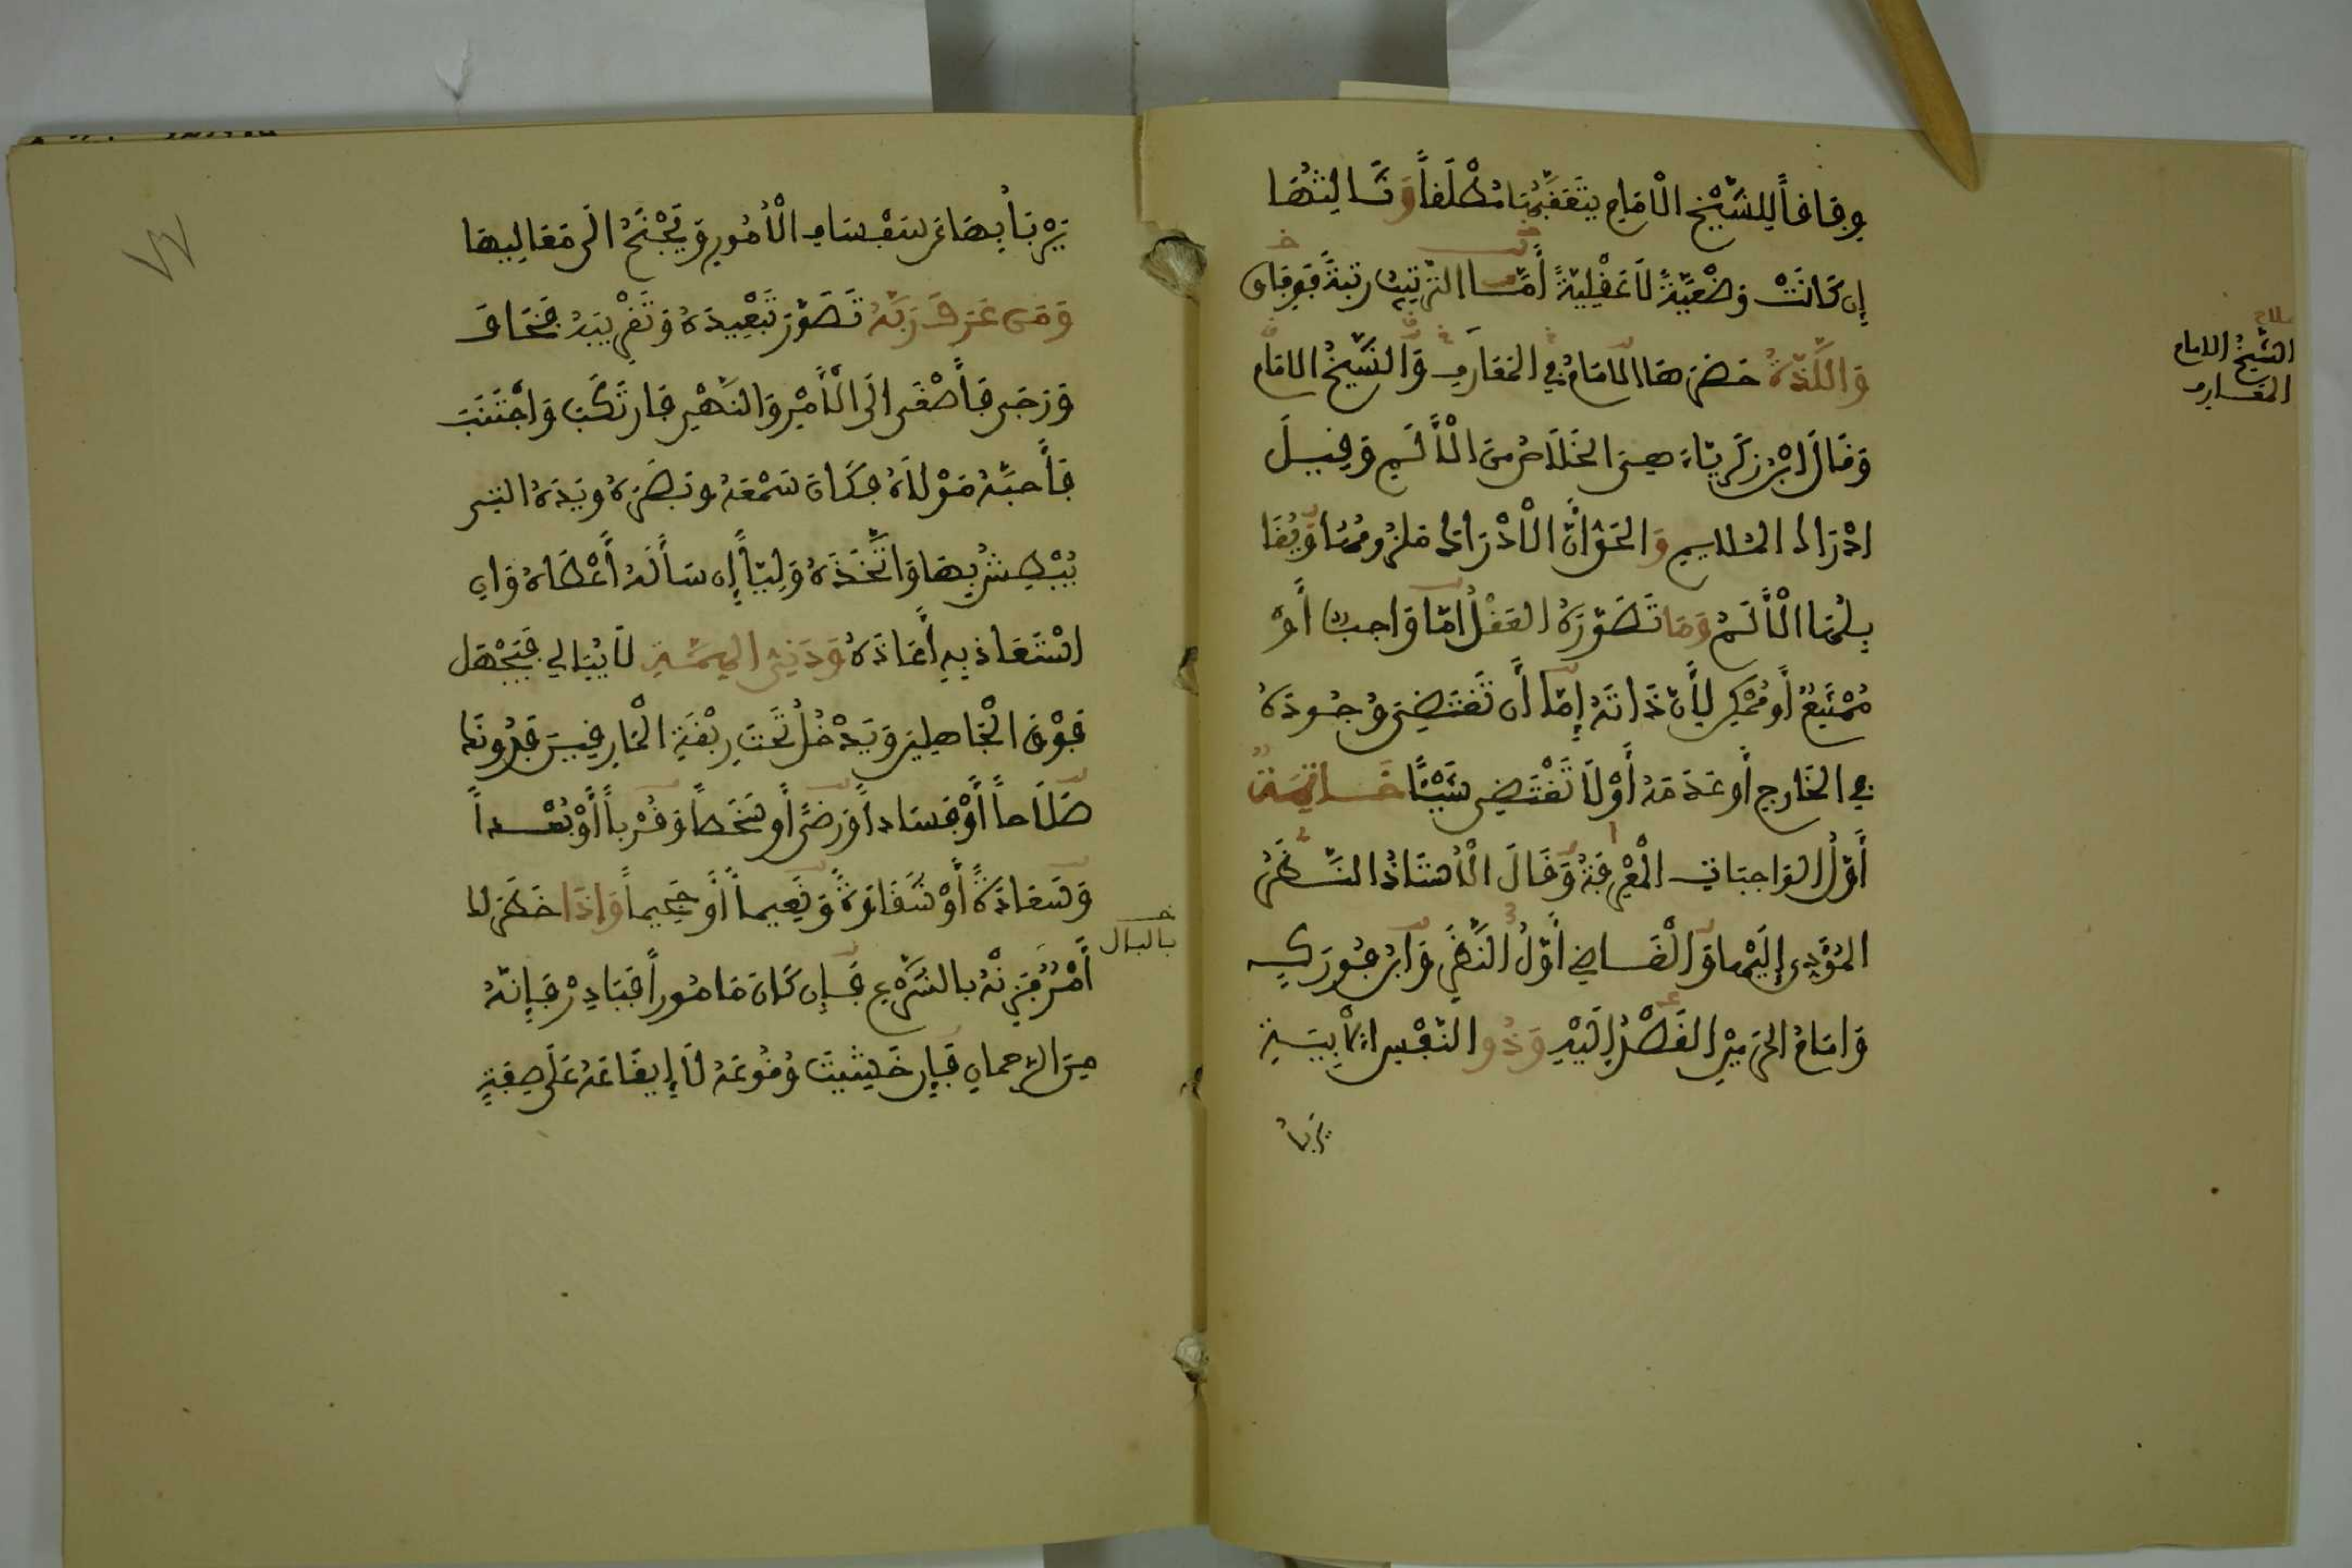 وِفَاقاً لِلشَّيْخِ الْامَامِ يتَعَقَّبُهَا مُطْلَقاً وَثَالِثُهَا
إِن كَانَتْ وَضْعِيَّةً لَا عَقْلِيَّةً أَمَّا التّرتيبُ رتبةً فَوِفَاق
وَاللَّذَّةُ حَصَرهَا الامَامُ في المعَارِف وَالشَّيْخُ الامَامُ
وَقَالَ ابْنُ زَكَرِيَّاءَ هِيَ الخَلَاصُ مِنَ الْأَلَمِ وَقِيلَ
ادْرَاك الملايم وَالحَقُّ أَنَّ الْادْرَاكَ ملزُومُهَا وَيُقَا
بِلُهَا الْأَلَمُ وَمَا تَصَوَّرَهُ العَقْلُ امّا وَاجِبٌ أَوْ
مُمْتَنِعٌ أَو مُمْكِن لِأَنّ ذَاتَهُ إِمّا أَن تَقْتَضِيَ وُجُودَهُ
في الخَارِج أَو عَدَمَهُ أَوْ لَا تَقْتَضِي شَيْئًا خَاتِمَةٌ
أَوّلُ الوَاجِبَاتِ الْمَعْرِفَةُ وَقَالَ الْأُسْتَاذُ النَّظَرُ
المُؤَدِّي إِلَيْهَا وَالْقَاضِي أَوّلُ النَّظَرِ وَابْنُ فُورَك
وَامَامُ الحَرَمَيْنِ القَصْدُ إِلَيْهِ وَذُو النَّفْسِ الْأَبِيَّةِ
يَرْبَأُ
الشَّيْخُ الامام
المعارف
يَرْبَأُ بِهَا عَن سَفْسَافِ الْأُمُورِ وَيَجْنَحُ الَى مَعَالِيهَا
وَمَن عَرَفَ رَبَّهُ تَصَوّرَ تَبْعِيدَهُ وَتَقْرِيبَهُ فَخَافَ
وَرَجَى فَأَصْغَى الَى الْأَمْرِ وَالنَّهْيِ فَارْتَكَبَ وَاجْتَنَبَ
فَأَحَبَّهُ مَوْلَاهُ فَكَانَ سَمْعَهُ وَبَصَرَهُ وَيَدَهُ التِي
يَبْطِشُ بِهَا وَاتَّخَذَهُ وَلِيّاً إِن سَأَلَهُ أَعْطَاهُ وَإِن
اسْتَعَاذَ بِهِ أَعَاذَهُ وَدَنِيُّ الهِمَّةِ لَا يُبَالِي فَيَجْهَل
فَوْقَ الْجَاهِلِينَ وَيَدْخُلُ تَحْتَ رِبْقَةِ الْمَارِقِينَ فَدُونَكَ
صَلَاحاً أَوْ فَسَاداً وَرضًى أَو سَخَطاً وَقُرْباً أَوْ بُعْداً
وَسَعَادَةً أَوْ شَقَاوَةً وَنَعِيماً أَوْ جَحِيماً وَإِذَا خَطَرَ لك
أَمْرٌ فَزِنْهُ بِالشَّرْعِ فَإِن كَانَ مَامُوراً فَبَادِرْ فَإِنّهُ
مِنَ الرّحمان فَإِن خَشِيتَ وُقُوعَهُ لَا إِيقَاعَهُ عَلَى صِفَةٍ
خ
بالبال